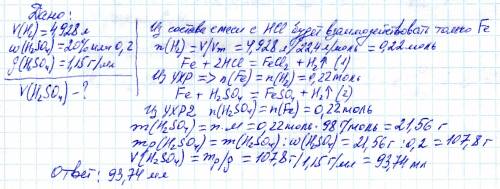 Дано:
V(H₂) = 4,928 л
w(H₂SO₄) = 20% или 0,2
ρ(H₂SO₄) = 1,15 г/мл
V(H₂SO₄) - ?
Из состава смеси с HCl будет взаимодействовать только Fe
n(H₂) = V/Vm = 4,928 л/22,4 л/моль = 0,22 моль
Fe + 2HCl = FeCl₂ + H₂↑ (1)
Из УХР => n(Fe) = n(H₂) = 0,22 моль
Fe + H₂SO₄ = FeSO₄ + H₂↑ (2)
Из УХР2 n(H₂SO₄) = n(Fe) = 0,22 моль
m(H₂SO₄) = n·M = 0,22 моль · 98 г/моль = 21,56 г
mр(H₂SO₄) = m(H₂SO₄) : w(H₂SO₄) = 21,56 г : 0,2 = 107,8 г
V(H₂SO₄) = mр/ρ = 107,8 г/1,15 г/мл = 93,74 мл
Ответ: 93,74 мл